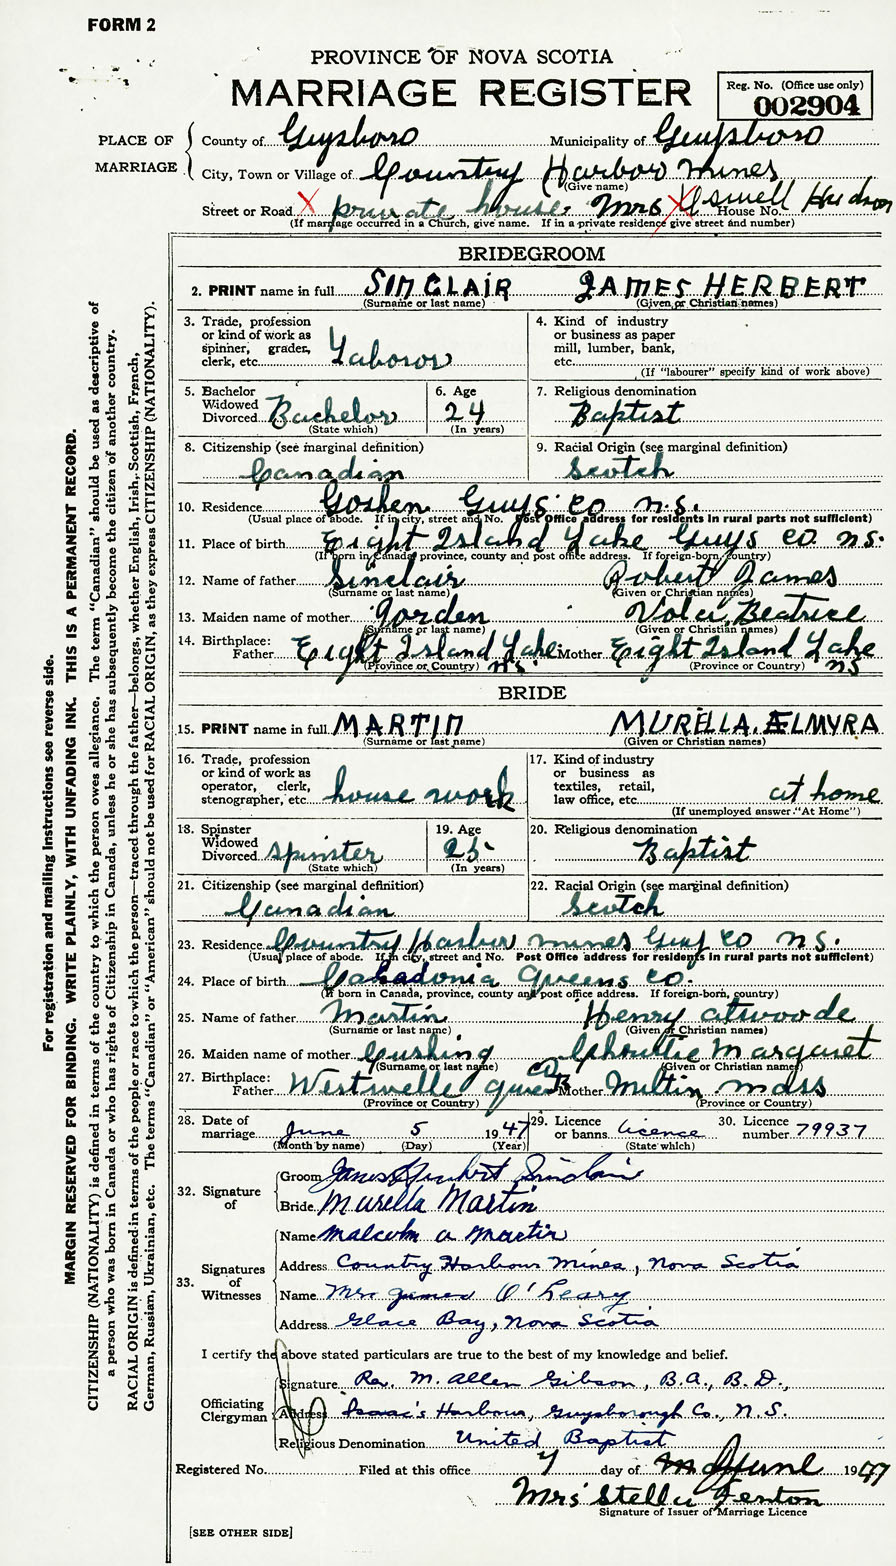 FORM 2
PROVINCE OF NOVA SCOTIA
MARRIAGE REGISTER
Reg. No. (Office use only)
002904
PLACE OF MARRIAGE
County of Guysboro Municipality of Guysboro
City, Town or Village of Country Harbor mines
(Give name)
Street or Road X private house. Mrs X Hudson House No.
(If marriage occurred in a Church, give name. If in a private residence give street and number)
BRIDEGROOM
2. PRINT name in full SINCLAIR JAMES HERBERT
(Surname or last name) (Given or Christian names)
3. Trade, profession or kind of work as spinner, grader, clerk, etc. Laboror
4. Kind of industry or business as paper mill, lumber, bank, etc.
(If "labourer" specify kind of work above)
5. Bachelor Widowed Divorced Bachelor
(State which)
6. Age 24
(In years)
7. Religious denomination
Baptist
8. Citizenship (see marginal definition)
Canadian
9. Racial Origin (see marginal definition)
Scotch
10. Residence Goshen Guys Co n.s.
(Usual place of abode. If in city, street and No. Post Office address for residents in rural parts not sufficient)
11. Place of birth Eight Island Lake Guys Co n.s.
(If born in Canada, province, county and post office address. If foreign-born, country)
12. Name of father Sinclair Robert James
(Surname or last name) (Given or Christian names)
13. Maiden name of mother Jorden Vola Beatrice
(Surname or last name) (Given or Christian names)
14. Birthplace: Father Eight Island Lake n.s. Mother Eight Island Lake n s
(Province or Country) (Province or Country)
BRIDE
15. PRINT name in full MARTIN MURELLA. ELMYRA
(Surname or last name) (Given or Christian names)
16. Trade, profession or kind of work as operator, clerk, stenographer, etc. house work
17. Kind of industry or business as textiles, retail, law office, etc. at home
(If unemployed answer "At Home")
18. Spinster Widowed Divorced Spinster
(State which)
19. Age 25
(In years)
20. Religious denomination
Baptist
21. Citizenship (see marginal definition)
Canadian
22. Racial Origin (see marginal definition)
Scotch
23. Residence Country Harbor mines Guy Co n s.
(Usual place of abode. If in city, street and No. Post Office address for residents in rural parts not sufficient)
24. Place of birth Caladonia Queens Co.
(If born in Canada, province, county and post office address. If foreign-born, country)
25. Name of father Martin Henry atwoode
(Surname or last name) (Given or Christian names)
26. Maiden name of mother Cushing Margaret
(Surname or last name) (Given or Christian names)
27. Birthplace: Father Westwelle Co Mother Miltin mass
(Province or Country) (Province or Country)
28. Date of marriage June 5 1947
(Month by name) (Day) (Year)
29. Licence or banns licence
(State which)
30. Licence number 79937
32. Signature of
Groom James Herbert Sinclair
Bride Murella Martin
33. Signatures of Witnesses
Name Malcolm a Martin
Address Country Harbour Mines, Nova Scotia
Name Mrs James O'Leary
Address Glace Bay, Nova Scotia
I certify the above stated particulars are true to the best of my knowledge and belief.
Officiating Clergyman
Signature Rev. M. Allen Gibson, B.A., B.D.,
Address Isaac's Harbour, Guysborough Co., N.S.
Religious Denomination United Baptist
Registered No. Filed at this office 7 day of June 1947
Mrs Stella Fenton
Signature of Issuer of Marriage Licence
[SEE OTHER SIDE]
For registration and mailing instructions see reverse side.
MARGIN RESERVED FOR BINDING. WRITE PLAINLY, WITH UNFADING INK. THIS IS A PERMANENT RECORD.
CITIZENSHIP (NATIONALITY) is defined in terms of the country to which the person owes allegiance. The term "Canadian" should be used as descriptive of
a person who was born in Canada or who has rights of Citizenship in Canada, unless he or she has subsequently become the citizen of another country.
RACIAL ORIGIN is defined in terms of the people or race to which the person—traced through the father—belongs, whether English, Irish, Scottish, French,
German, Russian, Ukrainian, etc. The terms "Canadian" or "American" should not be used for RACIAL ORIGIN, as they express CITIZENSHIP (NATIONALITY).